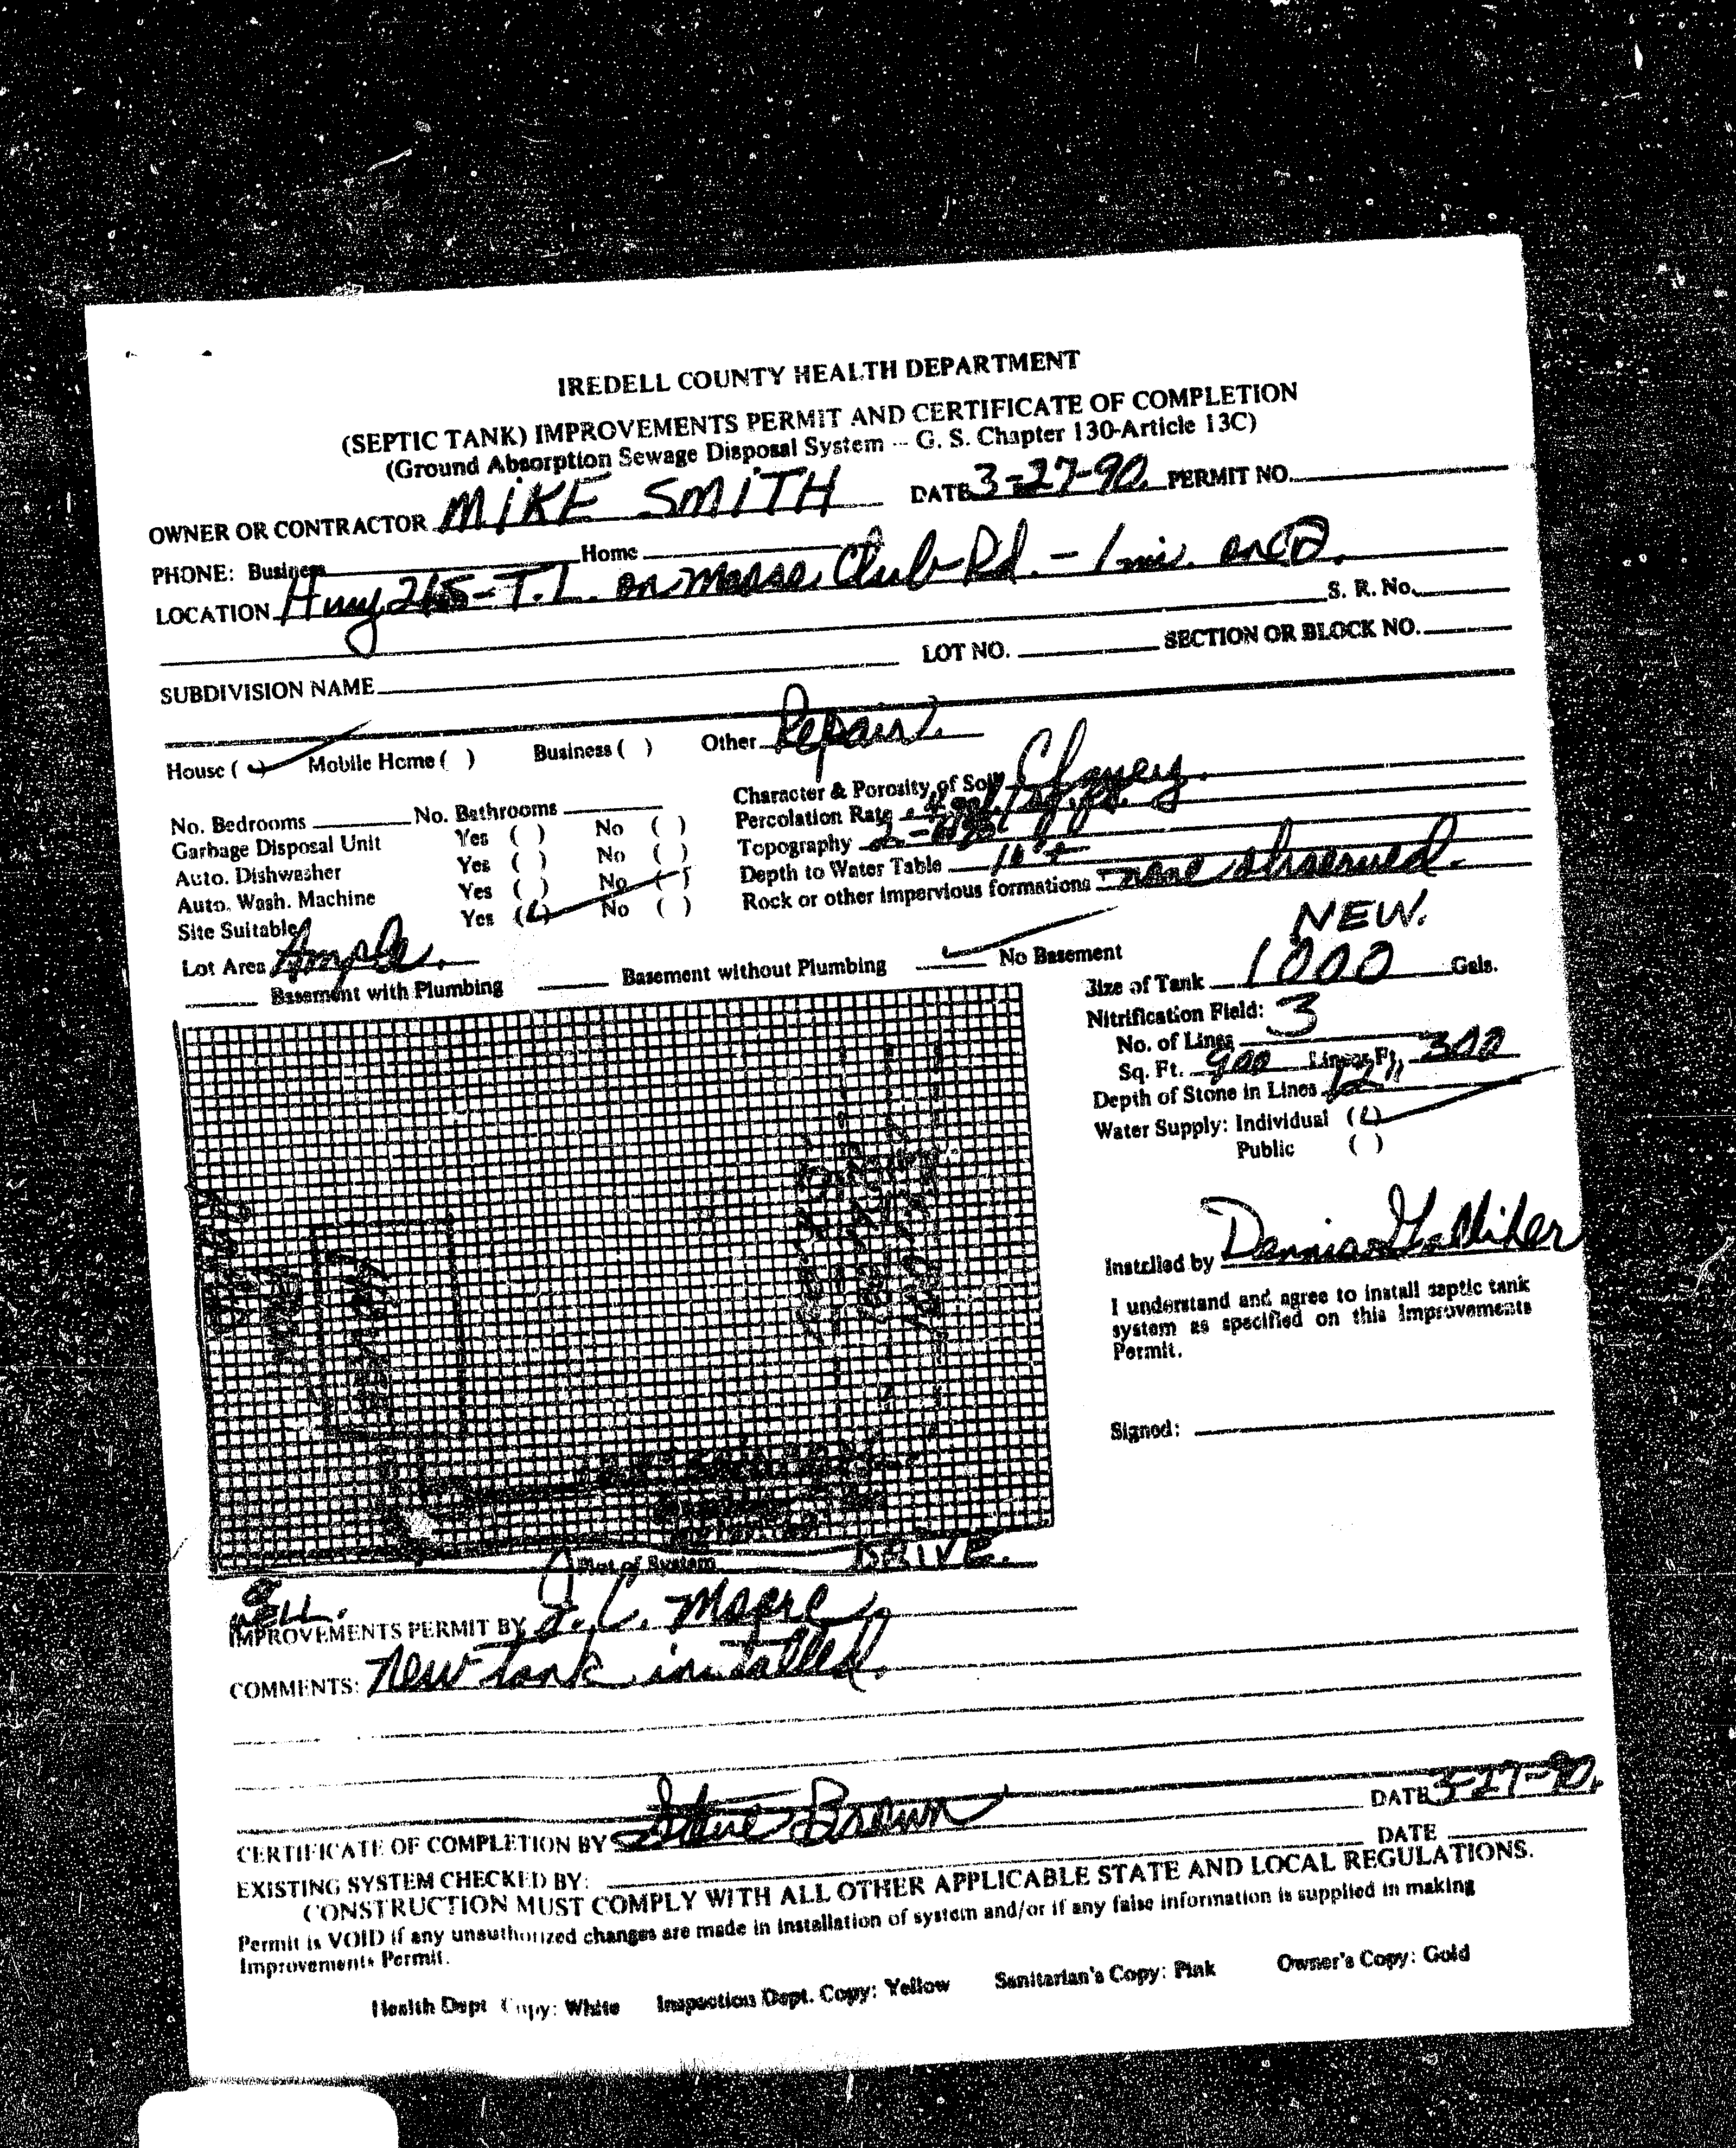 IREDELL COUNTY HEALTH DEPARTMENT
(SEPTIC TANK) IMPROVEMENTS PERMIT AND CERTIFICATE OF COMPLETION
(Ground Absorption Sewage Disposal System -- G. S. Chapter 130-Article 13C)
OWNER OR CONTRACTOR MIKE SMITH DATE 3-27-90. PERMIT NO.
PHONE: Business Home
LOCATION Hwy - T.L. on Club Rd. - 1 mi. on
S. R. No.
LOT NO. SECTION OR BLOCK NO.
SUBDIVISION NAME
House ( ) Mobile Home ( ) Business ( ) Other Repair.
No. Bedrooms No. Bathrooms
Garbage Disposal Unit Yes ( ) No ( )
Auto. Dishwasher Yes ( ) No ( )
Auto. Wash. Machine Yes ( ) No ( )
Site Suitable Yes ( ) No ( )
Lot Area Ample.
Character & Porosity of Soil Clayey.
Percolation Rate
Topography
Depth to Water Table
Rock or other impervious formations none observed.
Basement with Plumbing Basement without Plumbing No Basement
NEW.
Size of Tank 1000 Gals.
Nitrification Field:
No. of Lines 3
Sq. Ft. 900 Linear Ft. 300
Depth of Stone in Lines 12"
Water Supply: Individual ( )
Public ( )
Installed by Dennis
I understand and agree to install septic tank
system as specified on this Improvements
Permit.
Signed:
Plot of System DRIVE.
WELL.
IMPROVEMENTS PERMIT BY J. C. Moore
COMMENTS: New tank installed.
CERTIFICATE OF COMPLETION BY Steve Brown DATE 3-27-90.
EXISTING SYSTEM CHECKED BY: DATE
CONSTRUCTION MUST COMPLY WITH ALL OTHER APPLICABLE STATE AND LOCAL REGULATIONS.
Permit is VOID if any unauthorized changes are made in installation of system and/or if any false information is supplied in making
Improvements Permit.
Health Dept Copy: White Inspection Dept. Copy: Yellow Sanitarian's Copy: Pink Owner's Copy: Gold